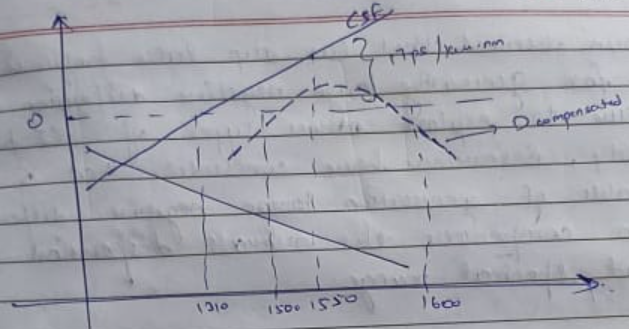 CSF
17 ps/km.nm
0
D compensated
1310 1500 1550 1600